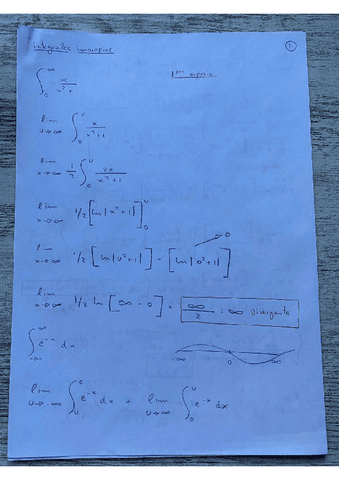 Integrales impropias 1
∫₀^∞ x/(x²+1) 1ʳᵃ especie
lim u→∞ ∫₀^u x/(x²+1)
lim x→∞ 1/2 ∫₀^u 2x/(x²+1)
lim x→∞ 1/2 [ln|x²+1|]₀^u
lim x→∞ 1/2 [ln|u²+1|] - [ln|0²+1|] → 0
lim x→∞ 1/2 ln [∞ - 0] = ∞/2 = ∞ Divergente
∫₋∞^∞ e^-x dx -∞ 0 ∞
lim u→-∞ ∫ᵤ^0 e^-x dx + lim u→∞ ∫₀^u e^-x dx